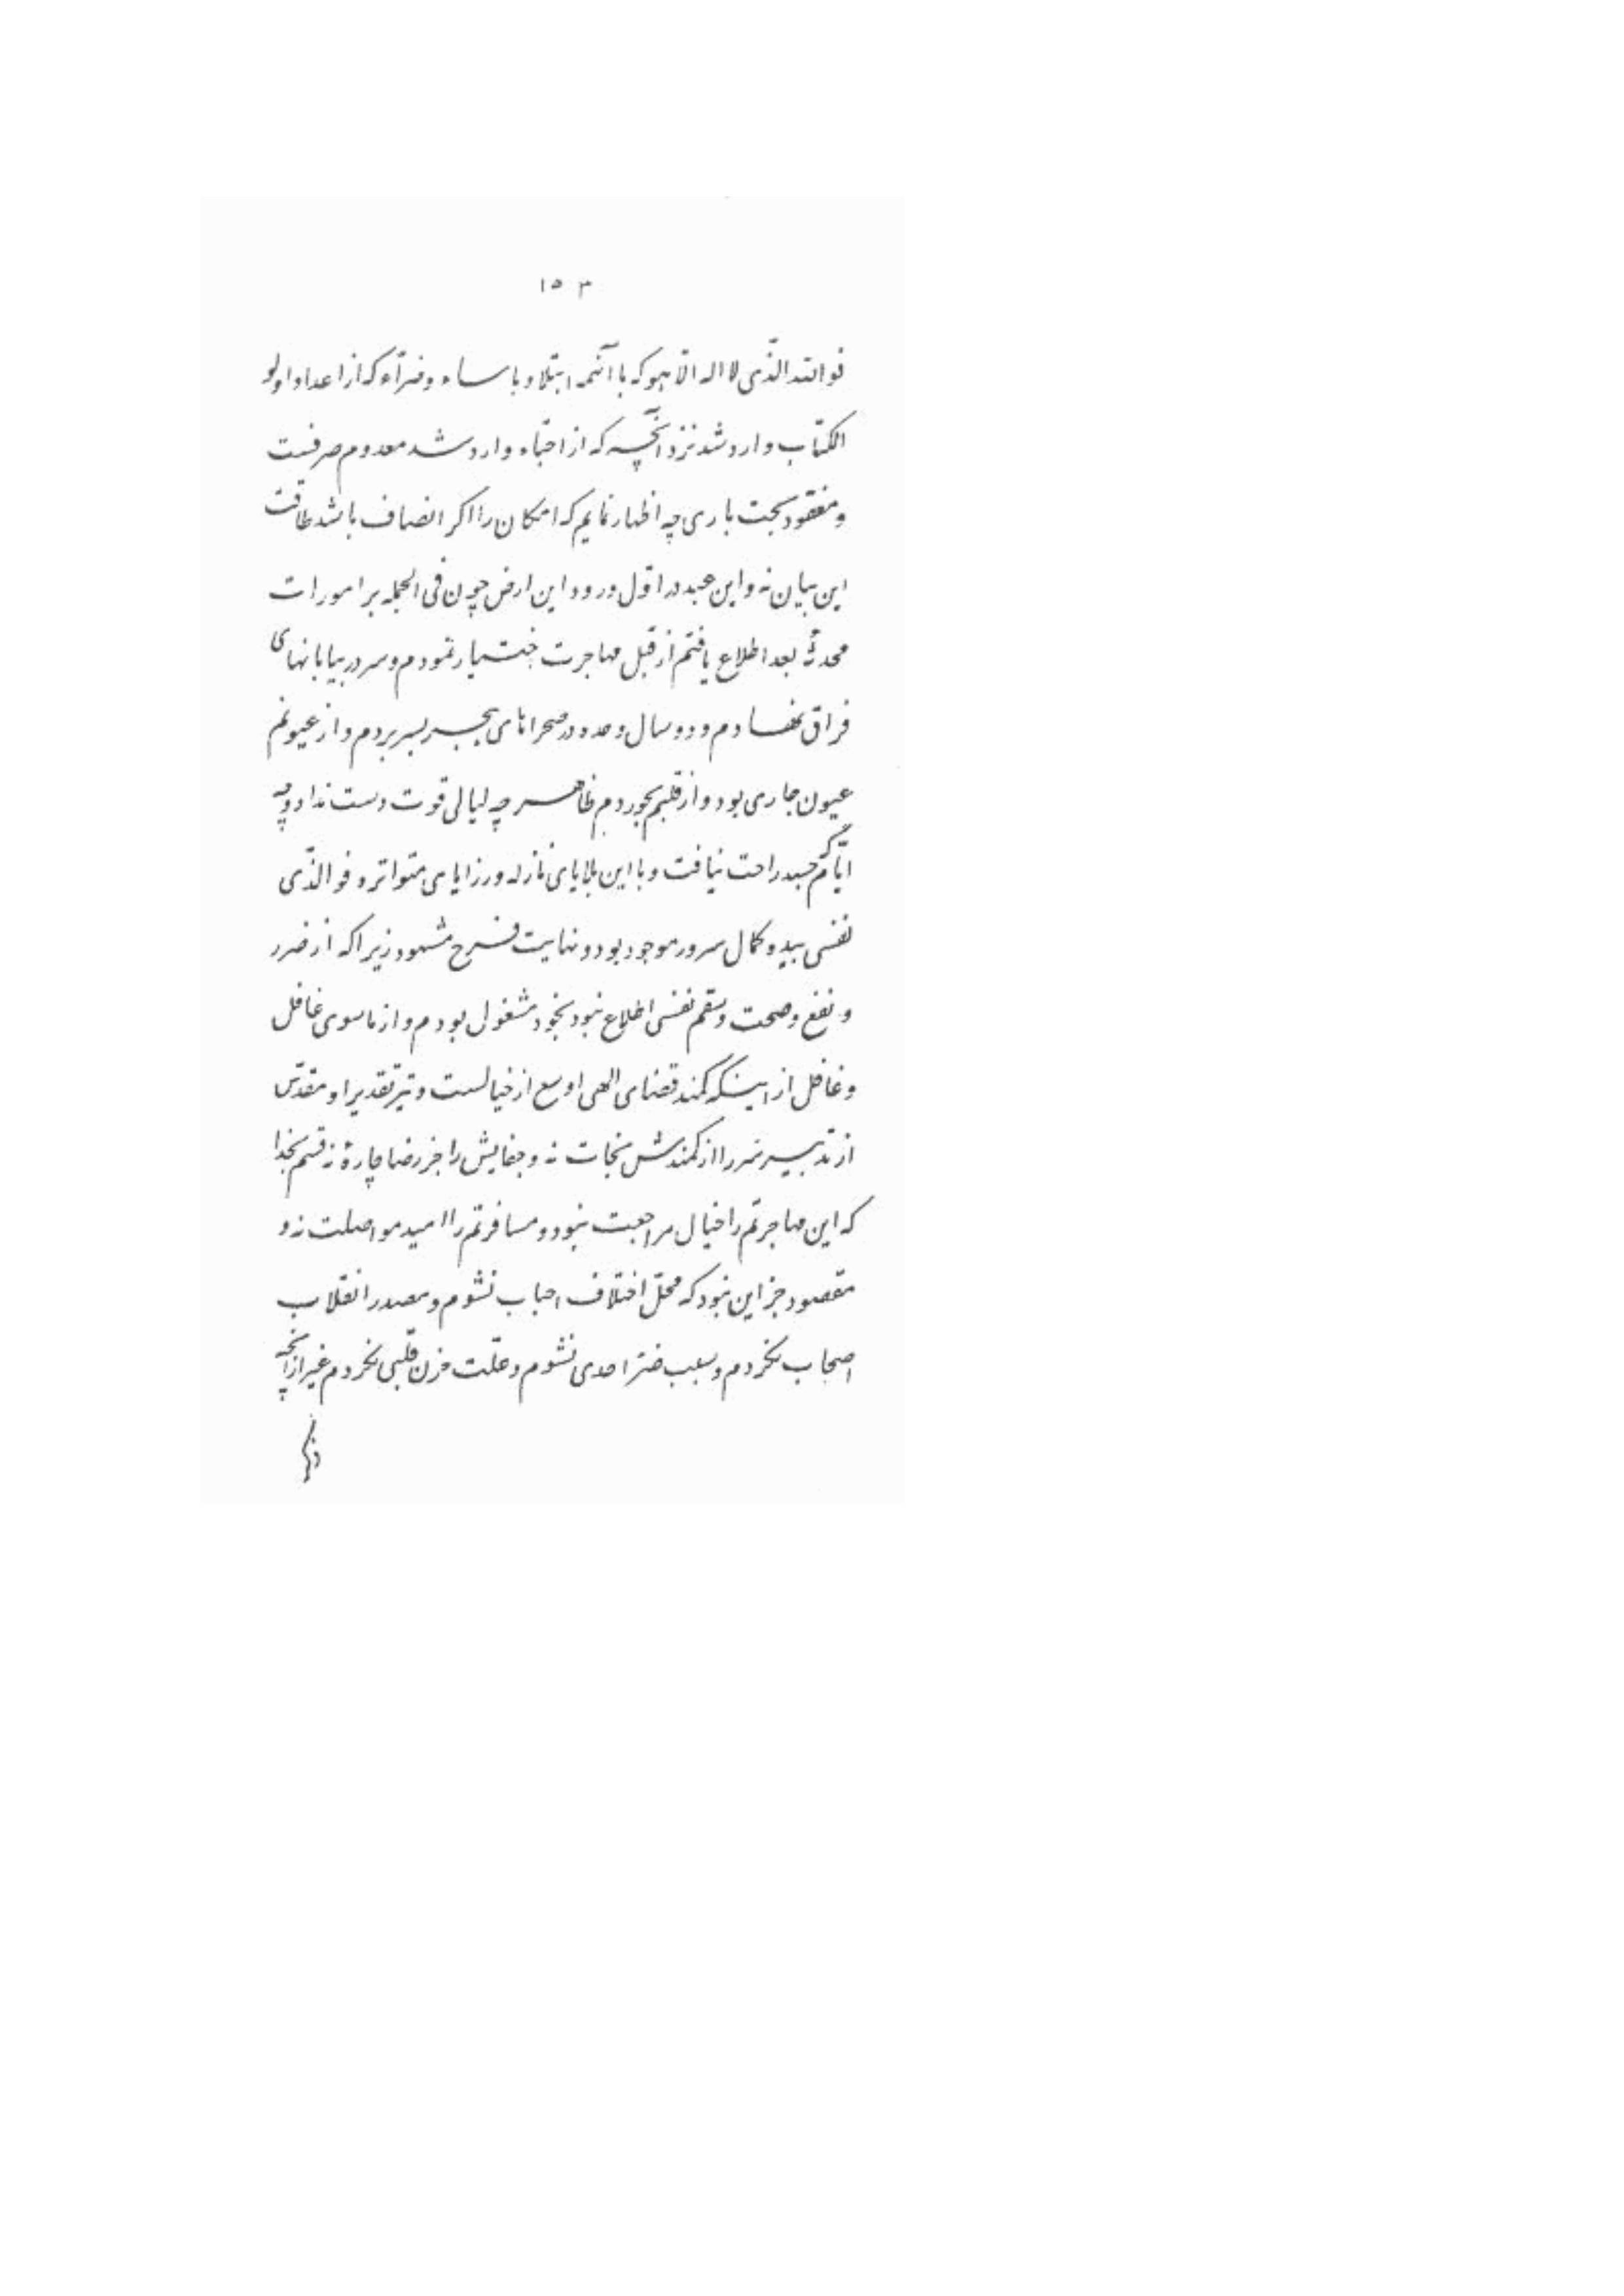 ١٥٣
فوالله الّذی لا اله الّا هو که با آنهمه ابتلا و باساء و ضرّاء که از اعدا و اولو
الکتاب وارد شد نزد آنچه که از احبّاء وارد شد معدوم صرفست
و مفقود بحت باری چه اظهار نمایم که امکان را اگر انصاف باشد طاقت
این بیان نه و این عبد در اوّل ورود این ارض چون فی الجمله بر امورات
محدثهٔ بعد اطلاع یافتم از قبل مهاجرت اختیار نمودم و سر در بیابانهای
فراق نهادم و دو سال وحده در صحراهای هجر بسر بردم و از عیونم
عیون جاری بود و از قلبم بحور دم ظاهر چه لیالی قوت دست نداد و چه
ایّام که جسد راحت نیافت و با این بلایای نازله و رزایای متواتره فوالّذی
نفسی بیده کمال سرور موجود بود و نهایت فرح مشهود زیرا که از ضرر
و نفع و صحت و سقم نفسی اطلاع نبود بخود مشغول بودم و از ماسوی غافل
و غافل از اینکه کمند قضای الهی اوسع از خیالست و تیر تقدیر او مقدّس
از تدبیر سر را از کمندش نجات نه و جفایش را جز رضا چارهٔ نه قسم بخدا
که این مهاجرتم را خیال مراجعت نبود و مسافرتم را امید مواصلت نه و
مقصود جز این نبود که محلّ اختلاف احباب نشوم و مصدر انقلاب
اصحاب نگردم و سبب ضرّ احدی نشوم و علّت حزن قلبی نگردم غیر از آنچه
ذکر